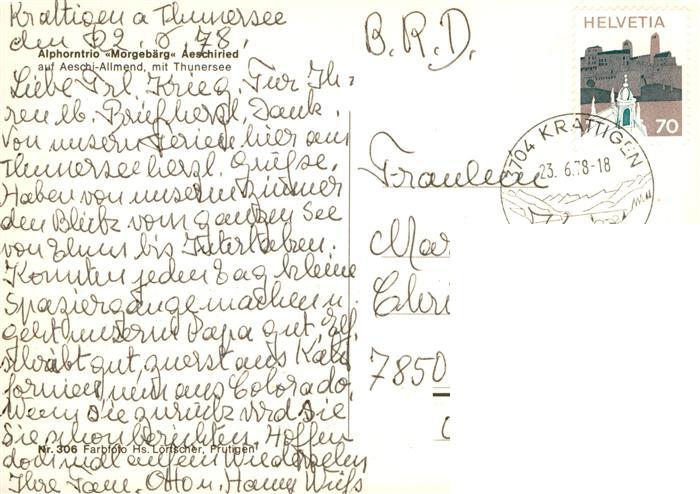 Krattigen a Thunersee
den 22. 6. 78.
Alphorntrio «Morgebärg» Aeschiried
auf Aeschi-Allmend, mit Thunersee
Liebe Frl. Krieg. Für Ih-
ren lb. Brief herzl. Dank.
Von unsern Ferien hier am
Thunersee herzl. Grüsse.
Haben von unserm Zimmer
den Blick vom ganzen See
von Thun bis Interlaken.
Konnten jeden Tag kleine
Spaziergänge machen u.
geht unserm Papa gut.
schreibt gut, zuerst aus Kali
fornien, nun aus Colorado.
Wenn sie zurück wird sie
Sie schon berichten. Hoffen
Nr. 306 Farbfoto Hs. Lörtscher, Frutigen
doch mal auf ein Wiedersehen
Ihre Fam. Otto u. Hanny
B.R.D.
HELVETIA
70
3704 KRATTIGEN
23.6.78-18
Fräulein
Mar
Chri
7850